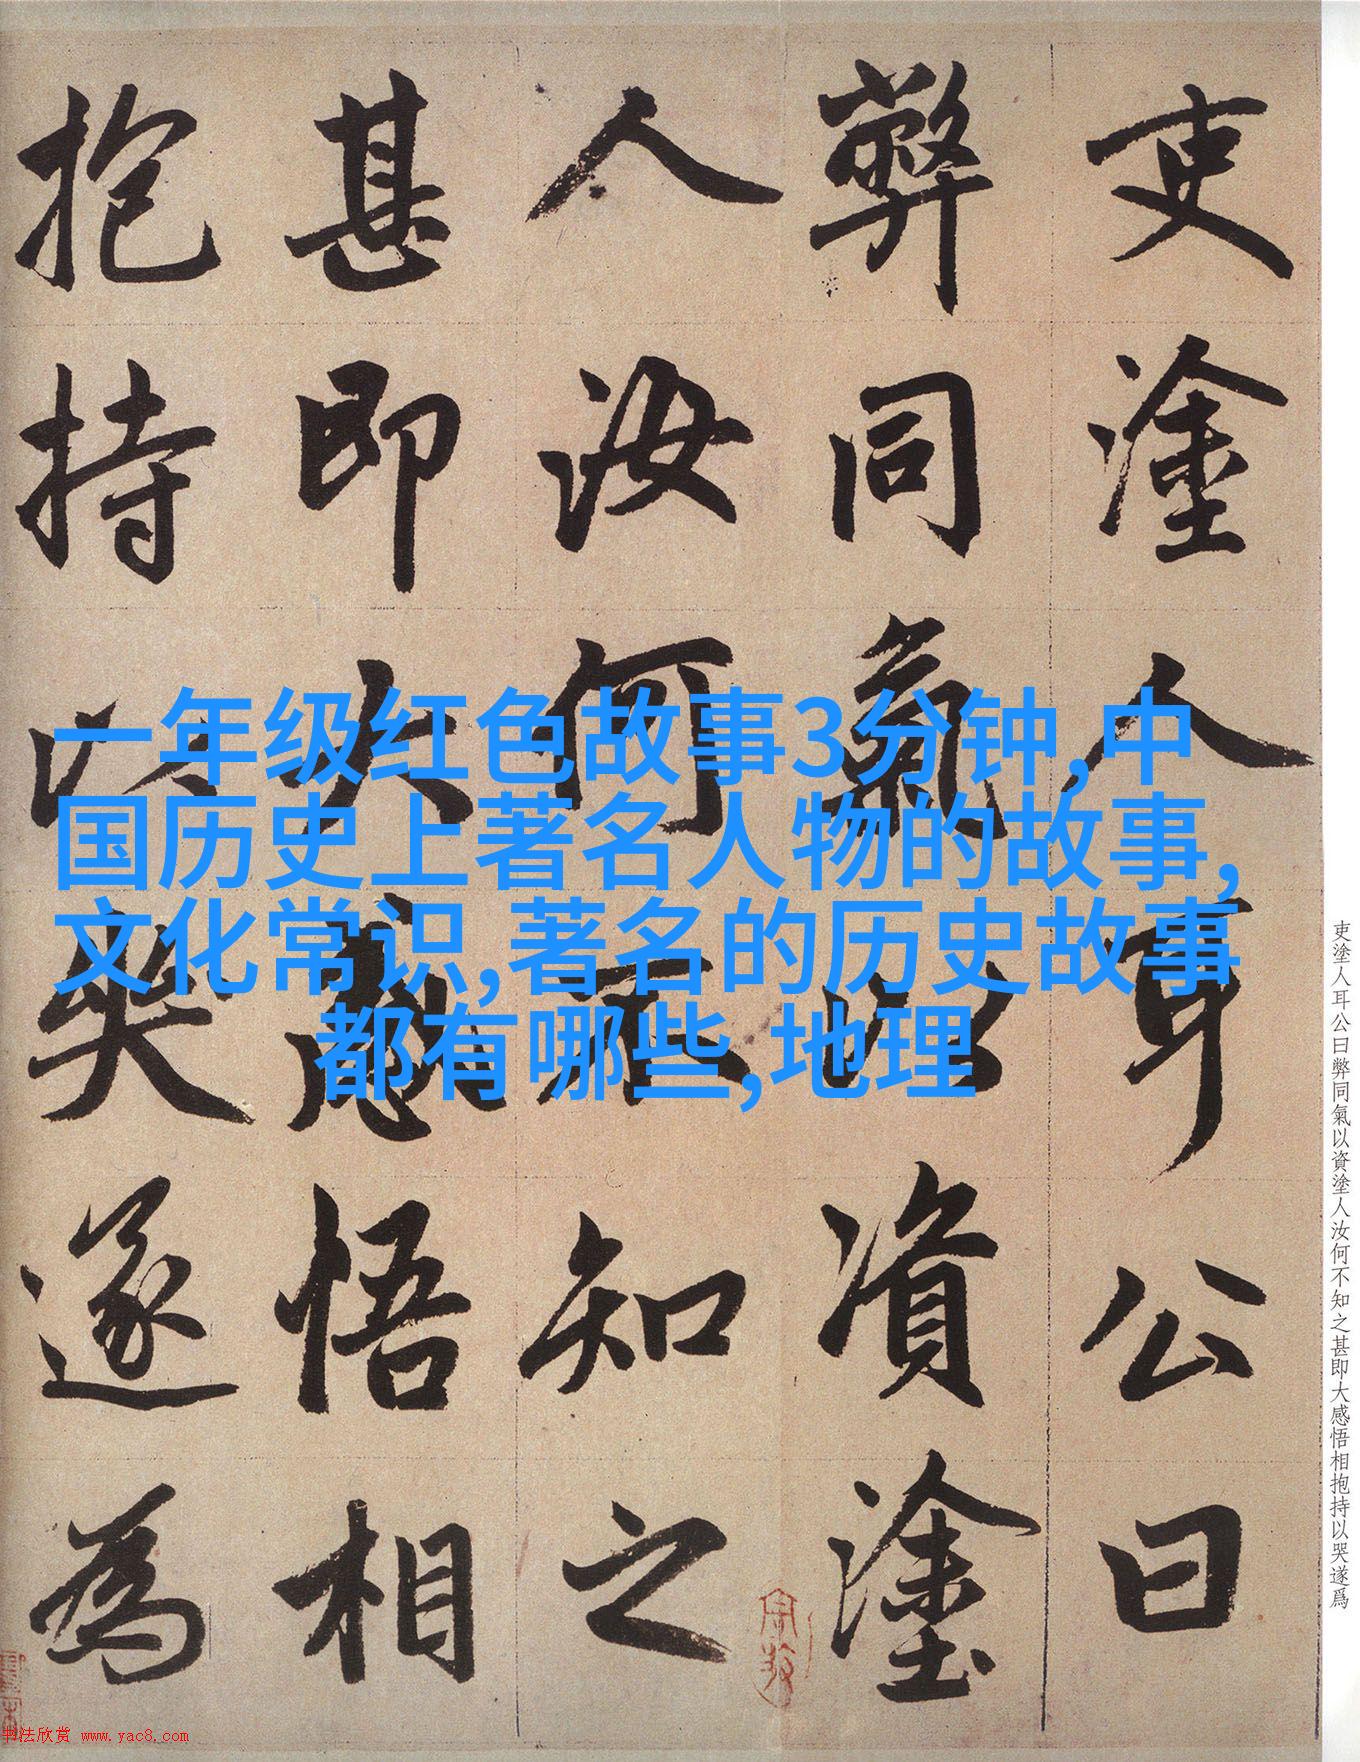 吏塗人耳公曰
弊同氣以資塗
人汝何不知之
甚即大感悟相
抱持以哭遂為
一年级红色故事3分钟,中
国历史上著名人物的故事,
文化常识,著名的历史故事
都有哪些,地理
吏塗人耳公曰弊同氣以資塗人汝何不知之甚即大感悟相抱持以哭遂爲
书法欣赏 www.yac8.com